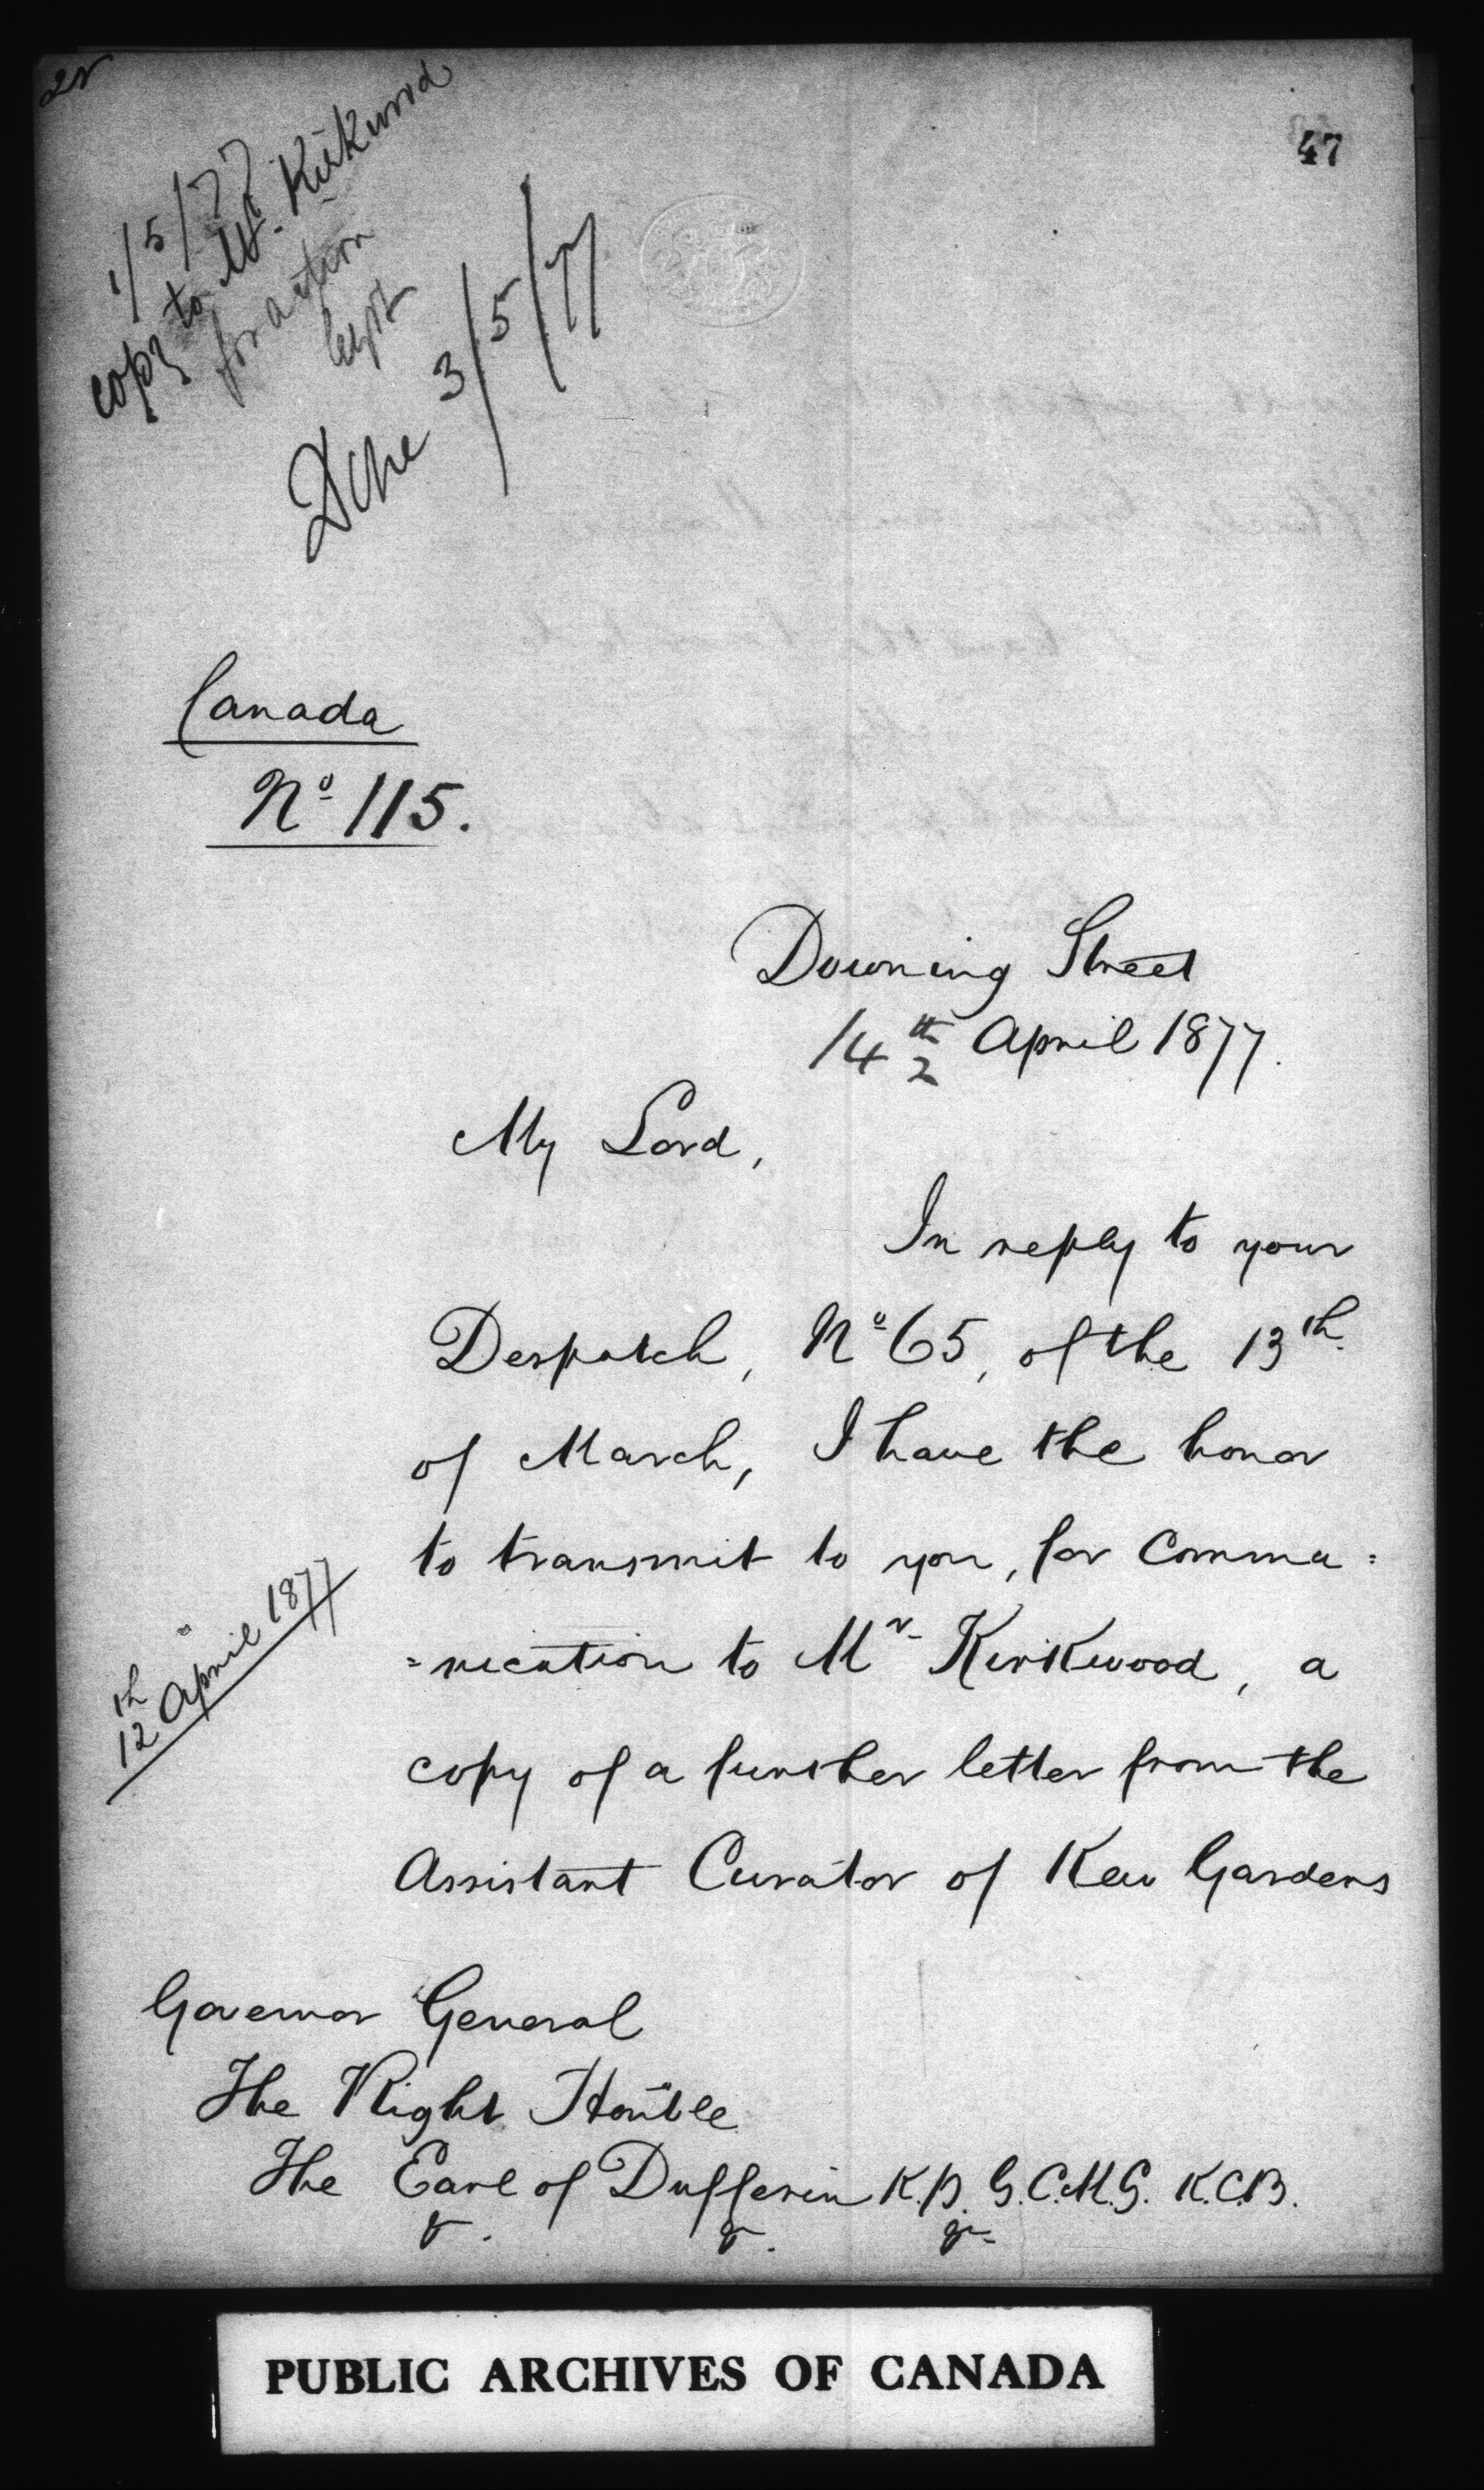 47
1/5/77
copy to Mr. Kirkwood
for action
kept
3/5/77
Canada
No 115.
Downing Street
14th April 1877.
My Lord,
In reply to your
Despatch, No 65, of the 13th
of March, I have the honor
to transmit to you, for Commu=
=nication to Mr Kirkwood, a
12th April 1877
copy of a further letter from the
Assistant Curator of Kew Gardens
Governor General
The Right Honble
The Earl of Dufferin K.P. G.C.M.G. K.C.B.
&. &. &.
PUBLIC ARCHIVES OF CANADA